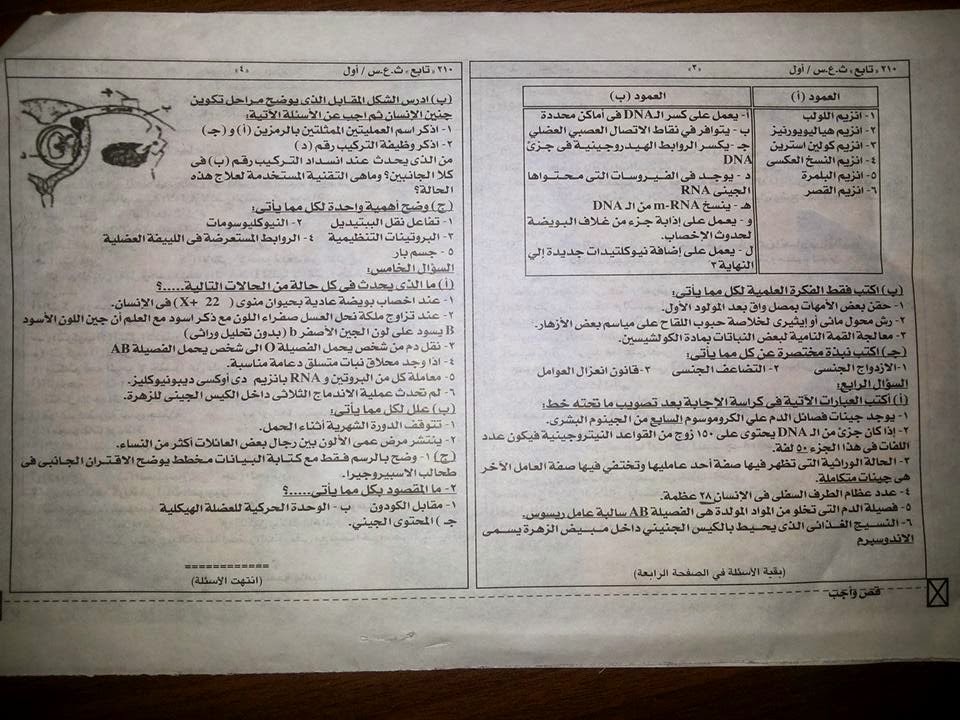 «٢١٠» تابع، ث.ع.س / أول
«٣»
العمود (أ)
العمود (ب)
١- انزيم اللولب
٢- انزيم هياليويورنيز
٣- انزيم كولين استرين
٤- انزيم النسخ العكسى
٥- انزيم البلمرة
٦- انزيم القصر
أ- يعمل على كسر الـDNA فى أماكن محددة
ب - يتوافر في نقاط الاتصال العصبي العضلي
جـ - يكسر الروابط الهيدروجينية فى جزئ
DNA
د - يوجد فى الفيروسات التى محتواها
الجينى RNA
هـ - ينسخ m-RNA من الـ DNA
و - يعمل على إذابة جزء من غلاف البويضة
لحدوث الإخصاب.
ل - يعمل على إضافة نيوكلتيدات جديدة إلي
النهاية ٣
(ب) اكتب فقط الفكرة العلمية لكل مما يأتى:
١- حقن بعض الأمهات بمصل واق بعد المولود الأول.
٢- رش محول مائى أو إيثيرى لخلاصة حبوب اللقاح على مياسم بعض الأزهار.
٣- معالجة القمة النامية لبعض النباتات بمادة الكولشيسين.
(جـ) اكتب نبذة مختصرة عن كل مما يأتى:
١- الازدواج الجنسى ٢- التضاعف الجنسى ٣- قانون انعزال العوامل
السؤال الرابع:
(أ) أكتب العبارات الآتية في كراسة الإجابة بعد تصويب ما تحته خط:
١- يوجد جينات فصائل الدم علي الكروموسوم السابع من الجينوم البشرى.
٢- إذا كان جزئ من الـ DNA يحتوى على ١٥٠ زوج من القواعد النيتروجينية فيكون عدد
اللفات في هذا الجزء ٥٠ لفة.
٣- الحالة الوراثية التى تظهر فيها صفة أحد عامليها وتختفي فيها صفة العامل الآخر
هى جينات متكاملة.
٤- عدد عظام الطرف السفلى فى الإنسان ٢٨ عظمة.
٥- فصيلة الدم التى تخلو من المواد المولدة هى الفصيلة AB سالبة عامل ريسوس.
٦- النسيج الغذائى الذى يحيط بالكيس الجنينى داخل مبيض الزهرة يسمى
الاندوسبرم
(بقية الأسئلة في الصفحة الرابعة)
قص وأجب
«٢١٠» تابع، ث.ع.س / أول
«٤»
(ب) ادرس الشكل المقابل الذى يوضح مراحل تكوين
جنين الإنسان ثم اجب عن الأسئلة الآتية:
١- اذكر اسم العمليتين الممثلتين بالرمزين (أ) و (جـ)
٢- اذكر وظيفة التركيب رقم (د)
من الذى يحدث عند انسداد التركيب رقم (ب) فى
كلا الجانبين؟ وماهى التقنية المستخدمة لعلاج هذه
الحالة؟
(ج) وضح أهمية واحدة لكل مما يأتى:
١- تفاعل نقل الببتيديل ٢- النيوكليوسومات
٣- البروتينات التنظيمية ٤- الروابط المستعرضة فى الليفة العضلية
٥- جسم بار
السؤال الخامس:
(أ) ما الذى يحدث فى كل حالة من الحالات التالية.....؟
١- عند اخصاب بويضة عادية بحيوان منوى ( X+ 22 ) فى الإنسان.
٢- عند تزاوج ملكة نحل العسل صفراء اللون مع ذكر اسود مع العلم أن جين اللون الأسود
B يسود على لون الجين الأصفر b (بدون تحليل وراثى)
٣- نقل دم من شخص يحمل الفصيلة O الى شخص يحمل الفصيلة AB
٤- اذا وجد محلاق نبات متسلق دعامة مناسبة.
٥- معاملة كل من البروتين و RNA بانزيم دى أوكسى ديبونيوكليز.
٦- لم تحدث عملية الاندماج الثلاثى داخل الكيس الجينى للزهرة.
(ب) علل لكل مما يأتى:
١- تتوقف الدورة الشهرية أثناء الحمل.
٢- ينتشر مرض عمى الألون بين رجال بعض العائلات أكثر من النساء.
(ج) ١- وضح بالرسم فقط مع كتابة البيانات مخطط يوضح الاقتران الجانبى فى
طحالب الاسبيروجيرا.
٢- ما المقصود بكل مما يأتى.....؟
١- مقابل الكودون ب - الوحدة الحركية للعضلة الهيكلية
جـ ) المحتوى الجيني.
============
(انتهت الأسئلة)